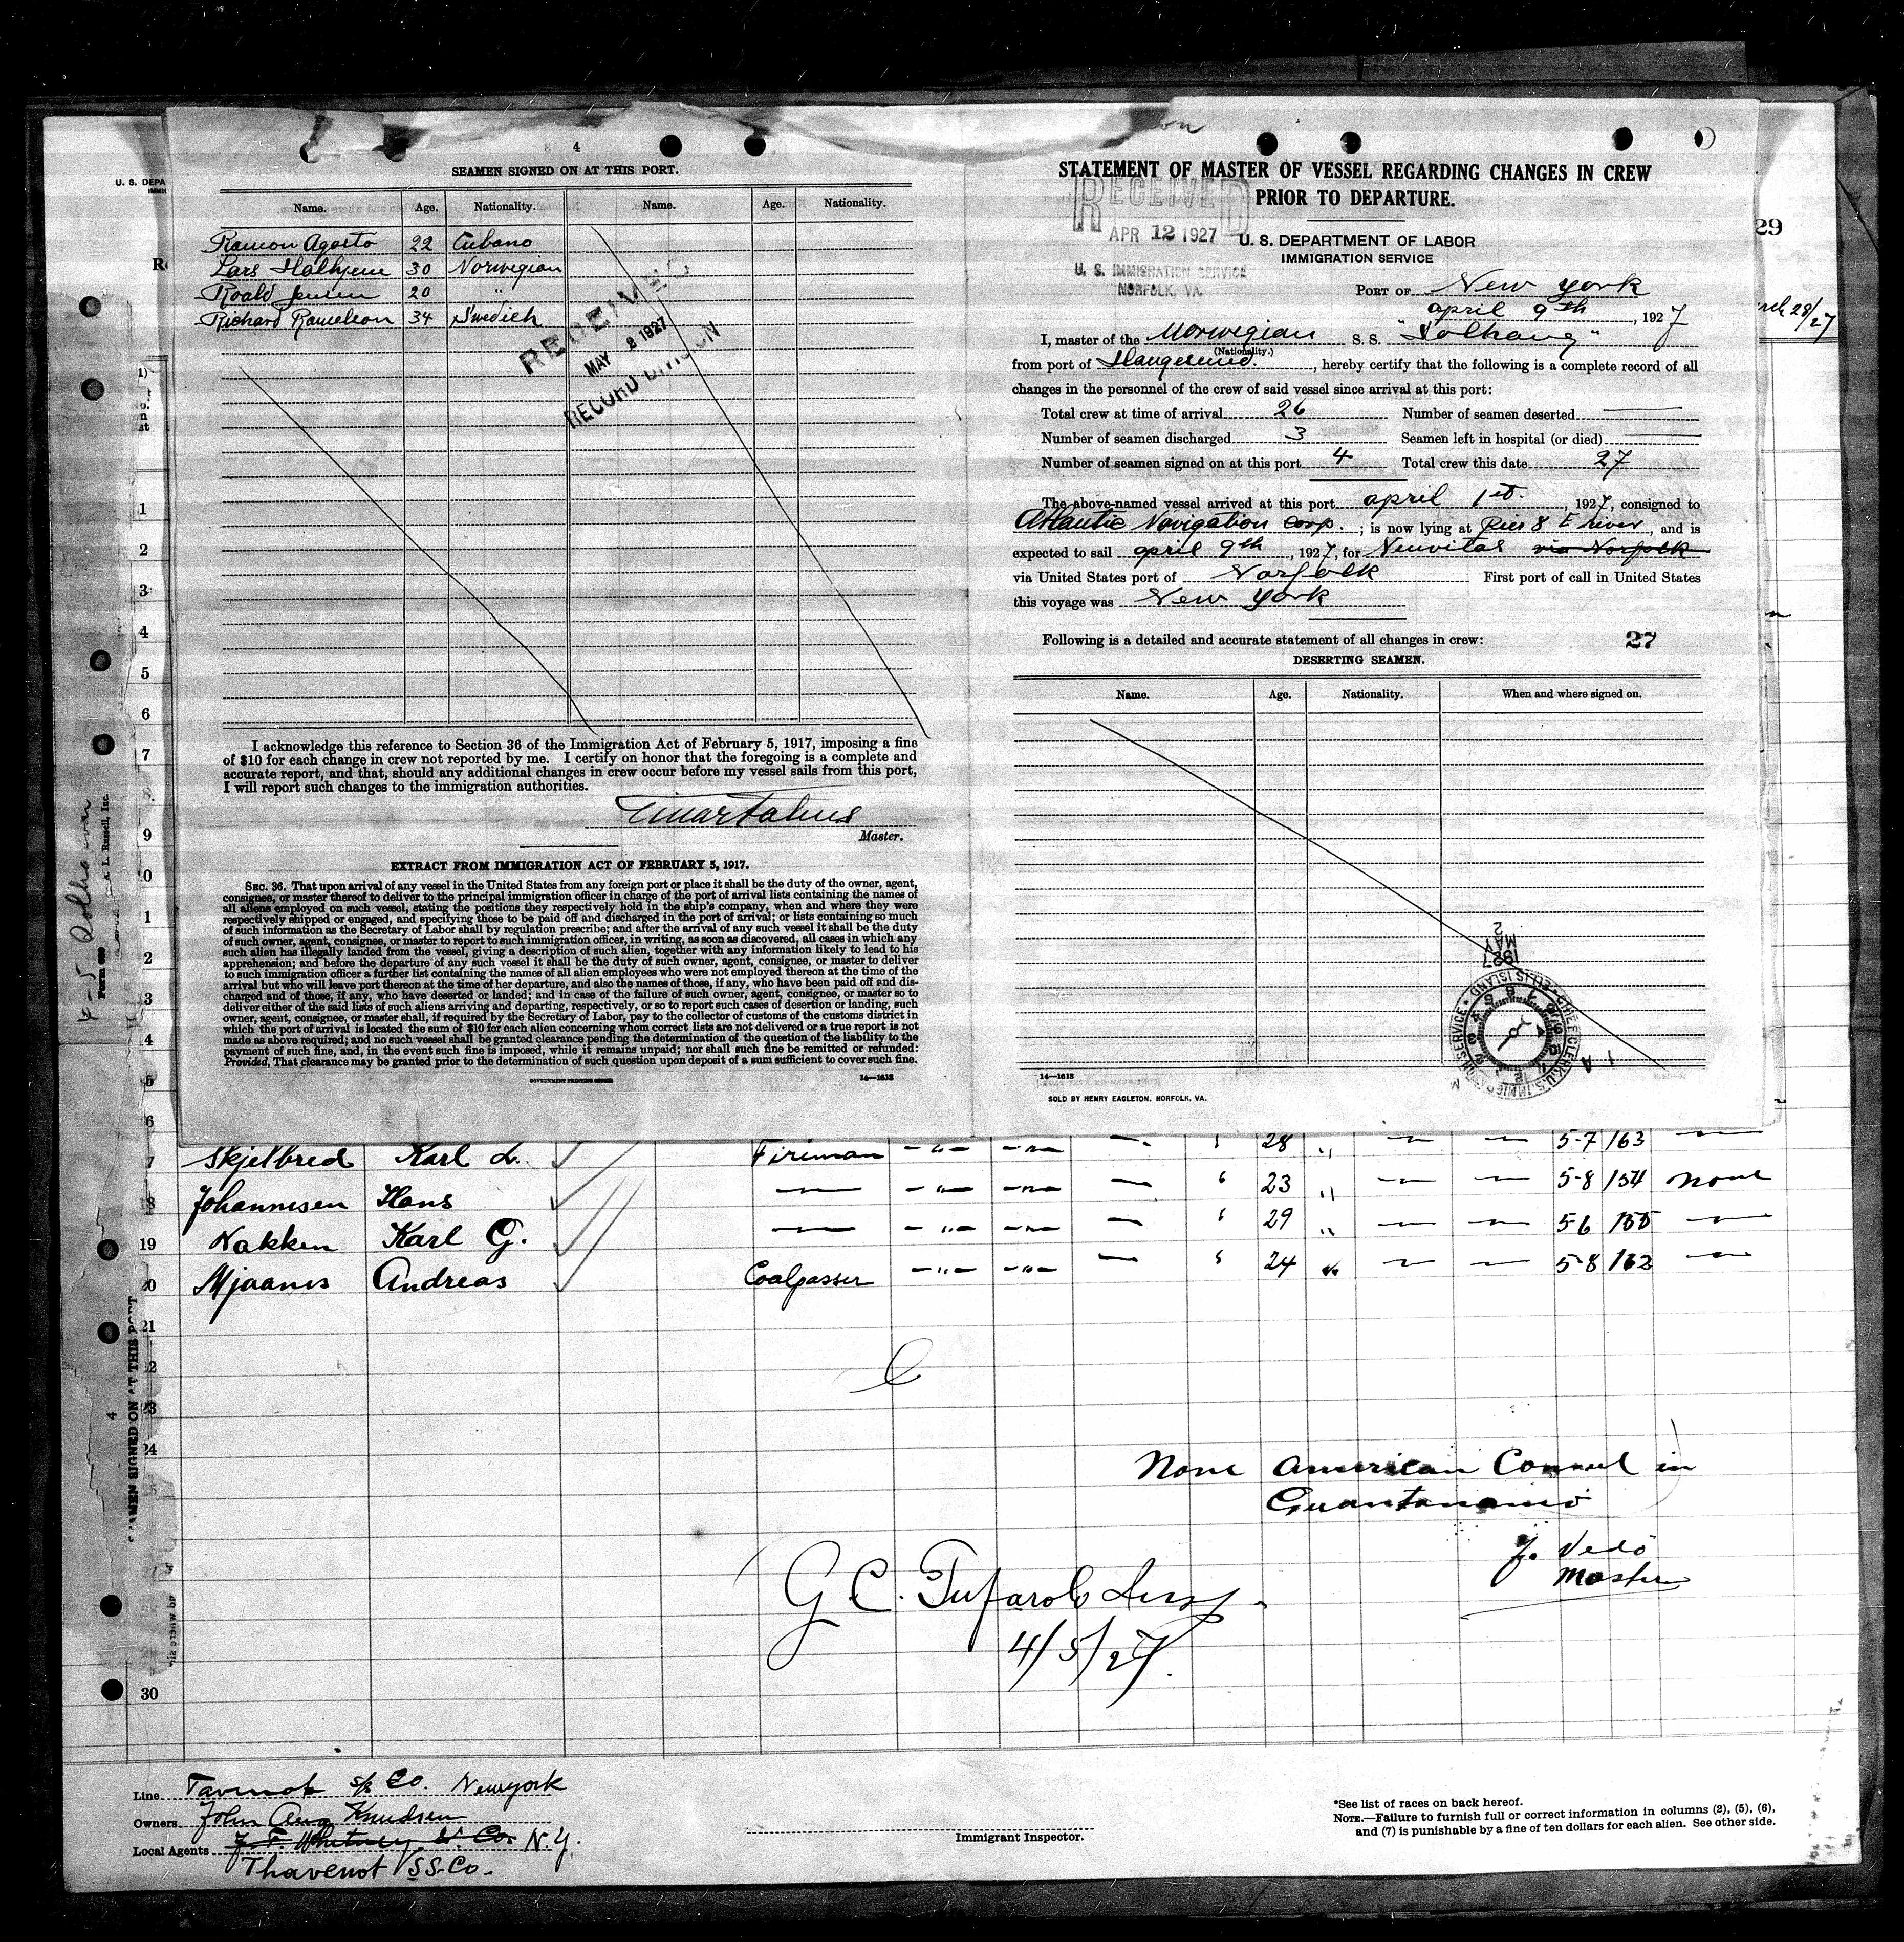 4
SEAMEN SIGNED ON AT THIS PORT.
Name. Age. Nationality. Name. Age. Nationality.
Ramon Agosto 22 Cubano
Lars 30 Norwegian
Roald Jensen 20 "
Richard 34 Swedish
RECEIVED
MAY 2 1927
RECORD DIVISION
I acknowledge this reference to Section 36 of the Immigration Act of February 5, 1917, imposing a fine
of $10 for each change in crew not reported by me. I certify on honor that the foregoing is a complete and
accurate report, and that, should any additional changes in crew occur before my vessel sails from this port,
I will report such changes to the immigration authorities.
Master.
EXTRACT FROM IMMIGRATION ACT OF FEBRUARY 5, 1917.
SEC. 36. That upon arrival of any vessel in the United States from any foreign port or place it shall be the duty of the owner, agent,
consignee, or master thereof to deliver to the principal immigration officer in charge of the port of arrival lists containing the names of
all aliens employed on such vessel, stating the positions they respectively hold in the ship's company, when and where they were
respectively shipped or engaged, and specifying those to be paid off and discharged in the port of arrival; or lists containing so much
of such information as the Secretary of Labor shall by regulation prescribe; and after the arrival of any such vessel it shall be the duty
of such owner, agent, consignee, or master to report to such immigration officer, in writing, as soon as discovered, all cases in which any
such alien has illegally landed from the vessel, giving a description of such alien, together with any information likely to lead to his
apprehension; and before the departure of any such vessel it shall be the duty of such owner, agent, consignee, or master to deliver
to such immigration officer a further list containing the names of all alien employees who were not employed thereon at the time of the
arrival but who will leave port thereon at the time of her departure, and also the names of those, if any, who have been paid off and dis-
charged and of those, if any, who have deserted or landed; and in case of the failure of such owner, agent, consignee, or master so to
deliver either of the said lists of such aliens arriving and departing, respectively, or so to report such cases of desertion or landing, such
owner, agent, consignee, or master shall, if required by the Secretary of Labor, pay to the collector of customs of the customs district in
which the port of arrival is located the sum of $10 for each alien concerning whom correct lists are not delivered or a true report is not
made as above required; and no such vessel shall be granted clearance pending the determination of the question of the liability to the
payment of such fine, and, in the event such fine is imposed, while it remains unpaid; nor shall such fine be remitted or refunded:
Provided, That clearance may be granted prior to the determination of such question upon deposit of a sum sufficient to cover such fine.
GOVERNMENT PRINTING OFFICE 14—1613
STATEMENT OF MASTER OF VESSEL REGARDING CHANGES IN CREW
PRIOR TO DEPARTURE.
RECEIVED
APR 12 1927
U. S. IMMIGRATION SERVICE
NORFOLK, VA.
U. S. DEPARTMENT OF LABOR
IMMIGRATION SERVICE
PORT OF New York
april 9th, 1927
I, master of the Norwegian S. S. "Solhaug"
(Nationality.)
from port of Haugesund., hereby certify that the following is a complete record of all
changes in the personnel of the crew of said vessel since arrival at this port:
Total crew at time of arrival 26 Number of seamen deserted —
Number of seamen discharged 3 Seamen left in hospital (or died) —
Number of seamen signed on at this port 4 Total crew this date 27
The above-named vessel arrived at this port april 1st., 1927, consigned to
Atlantic Navigation Corp.; is now lying at Pier 8 E river, and is
expected to sail april 9th, 1927, for Neuvitas via Norfolk
via United States port of Norfolk First port of call in United States
this voyage was New York
Following is a detailed and accurate statement of all changes in crew: 27
DESERTING SEAMEN.
Name. Age. Nationality. When and where signed on.
MAY 2 1927
CHIEF CLERK U. S. IMMIGRATION SERVICE • ELLIS ISLAND
14—1613
SOLD BY HENRY EAGLETON, NORFOLK, VA.
U. S. DEPA
29
1
2
3
4
5
6
7
8
9
0
1
2
3
4
5
6
7 Skjelbred Karl L. Fireman 28 5-7 163
18 Johannesen Hans 23 5-8 154 None
19 Nakken Karl G. 29 5-6 155
20 Mjaanes Andreas Coalpasser 24 5-8 162
21
22
23
24
None American Consul in
Guantanamo
J. Vedö
Master
G. C. Insp.
4/5/27.
30
SEAMEN SIGNED ON AT THIS PORT
4
L. Russell, Inc.
Line Co. New York
Owners John Aug Knudsen
Local Agents J. F. Whitney & Co. N.Y.
Thavenot SS. Co.
Immigrant Inspector.
*See list of races on back hereof.
NOTE.—Failure to furnish full or correct information in columns (2), (5), (6),
and (7) is punishable by a fine of ten dollars for each alien. See other side.